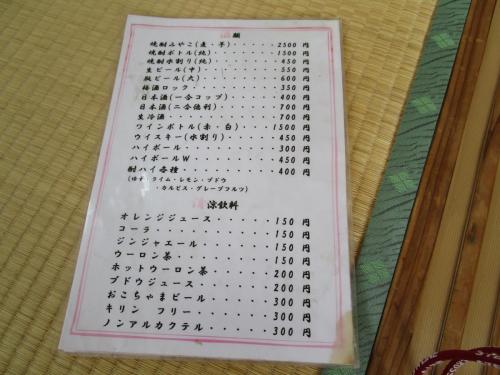 酒類
焼酎みやこ(麦・芋)・・・・・2500円
焼酎ボトル(純)・・・・・・1500円
焼酎水割り(純)・・・・・・450円
生ビール(中)・・・・・・・550円
瓶ビール(大)・・・・・・・600円
梅酒ロック・・・・・・・・350円
日本酒(一合コップ)・・・・400円
日本酒(二合徳利)・・・・・700円
生冷酒・・・・・・・・・・700円
ワインボトル(赤・白)・・・1500円
ウイスキー(水割り)・・・・450円
ハイボール・・・・・・・・300円
ハイボールW・・・・・・・450円
酎ハイ各種・・・・・・・・400円
(ゆず・ライム・レモン・ブドウ
・カルピス・グレープフルツ)
清涼飲料
オレンジジュース・・・・・150円
コーラ・・・・・・・・・・150円
ジンジャエール・・・・・・150円
ウーロン茶・・・・・・・・150円
ホットウーロン茶・・・・・200円
ブドウジュース・・・・・・200円
おこちゃまビール・・・・・300円
キリン フリー・・・・・・300円
ノンアルカクテル・・・・・300円